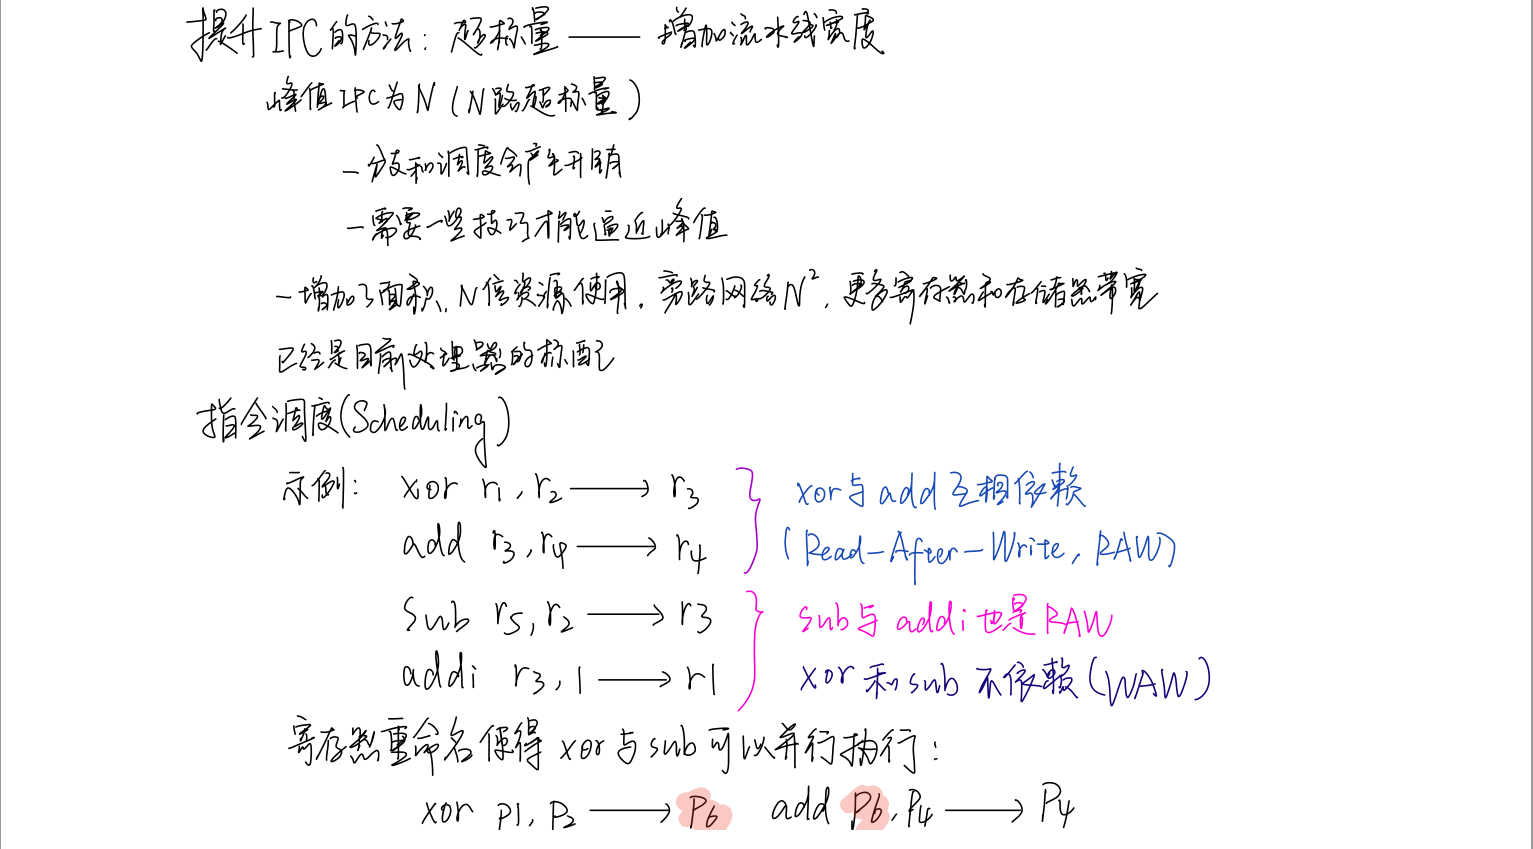 提升IPC的方法：超标量——增加流水线宽度
峰值IPC为N（N路超标量）
－分支和调度会产生开销
－需要一些技巧才能逼近峰值
－增加了面积，N倍资源使用，旁路网络N²，更多寄存器和存储器带宽
已经是目前处理器的标配
指令调度(Scheduling)
示例： xor r1,r2 ⟶ r3 xor与add互相依赖
add r3,r4 ⟶ r4 (Read-After-Write, RAW)
sub r5,r2 ⟶ r3 sub与addi也是RAW
addi r3,1 ⟶ r1 xor和sub不依赖(WAW)
寄存器重命名使得xor与sub可以并行执行：
xor p1,p2 ⟶ P6 add P6,P4 ⟶ P4